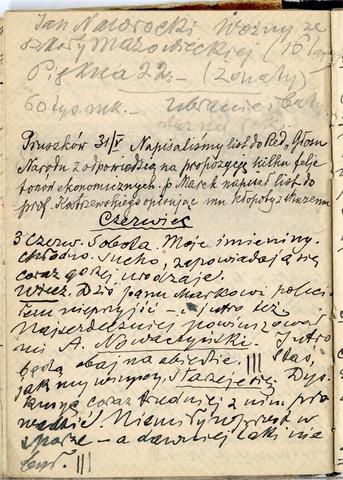 Jan Nawrocki Woźny ze
szkoły Mazowieckiej (16
Piękna 22.- (żonaty)
60 tys. mk. - ubranie
Pruszków 31/V Napisaliśmy list do Red. „Głosu
Narodu" z odpowiedzią na propozycję kilku felje
tonów ekonomicznych. p Marek napisał list do
prof. Kostrzewskiego opisując mu kłopoty z Muzeum
Czerwiec
3 Czerw. Sobota. Moje imieniny.
Chłodno. Sucho, zapowiadają się
coraz gorzej urodzaje.
Wiecz. Dziś panu Markowi poleci
łem nieprzyjść - jutro też.
Najserdeczniej powinszowa
ni A. Nowaczyński. Jutro
będą obaj na obiedzie. ||| Staś,
jak my wszyscy, starzeje się. Dys-
kusja coraz trudniej z nim pro
wadzić. Niemiły w
sporze - a dawniej taki nie
był. |||